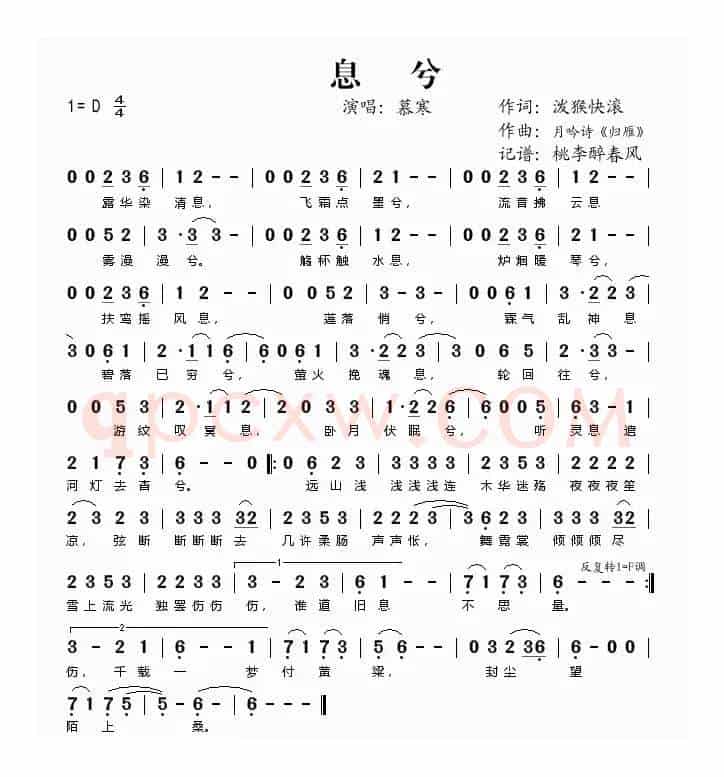 息 兮
1=D 4/4 演唱：慕寒 作词：泼猴快滚
作曲：月吟诗《归雁》
记谱：桃李醉春风
0 0 2 3 6 | 1 2 - - | 0 0 2 3 6 | 2 1 - - | 0 0 2 3 6 | 1 2 - - |
露华染 清息， 飞霜点 墨兮， 流音拂 云息
0 0 5 2 | 3 · 3 3 - | 0 0 2 3 6 | 1 2 - - | 0 0 2 3 6 | 2 1 - - |
雾漫 漫兮。 觞杯触 水息， 炉烟暖 琴兮，
0 0 2 3 6 | 1 2 - - | 0 0 5 2 | 3 - 3 - | 0 0 6 1 | 3 · 2 2 3 |
扶鸾摇 风息， 莲落 悄兮， 霖气 乱神息
3 0 6 1 | 2 · 1 1 6 | 6 0 6 1 | 3 · 2 2 3 | 3 0 5 2 | 2 · 3 3 - |
碧落 已穷兮， 萤火 挽魂息， 轮回 往兮，
0 0 5 3 | 2 · 1 1 2 | 0 0 5 3 | 1 · 2 2 6 | 6 - 6 5 | 6 3 - 1 |
游纹 叹冥息， 卧月 伏眠兮， 听 灵息追
2 1 7 3 | 6 - - 0 ‖: 0 6 2 3 | 3 3 3 2 | 2 3 5 3 | 5 5 5 2 |
河灯去杳 兮。 远山浅 浅浅浅连 木华迷殇 夜夜夜笙
2 3 2 3 | 3 3 3 3 2 | 2 3 5 3 | 2 2 2 3 | 3 6 2 3 | 3 3 3 3 2 |
凉，弦断 断断断去 几许柔肠 声声怅， 舞霓裳 倾倾倾尽
1 反复转1=F调
2 3 5 3 | 5 5 5 2 | 3 - 2 3 | 6 1 - - | 7 1 7 3 | 6 - - - :‖
雪上流光 独罢伤伤 伤，谁道 旧息 不思 量。
2
3 - 2 1 | 6 - - 6 | 7 1 7 3 | 5 6 - - | 0 3 2 3 6 | 6 - - 6 |
伤，千载 一 梦付黄 粱， 封尘 望
7 1 7 5 | 5 - 5 6 | 6 - - - ‖
陌上 桑。
qpcxw.COM